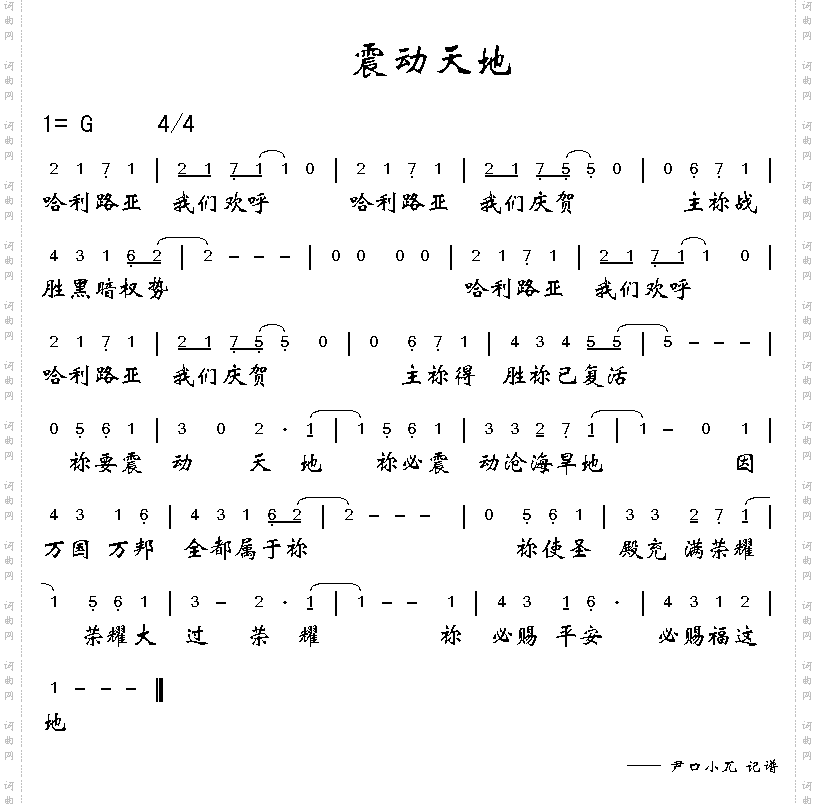 震动天地
1= G 4/4
2 1 7 1 | 2 1 7 1 1 0 | 2 1 7 1 | 2 1 7 5 5 0 | 0 6 7 1 |
哈利路亚 我们欢呼 哈利路亚 我们庆贺 主祢战
4 3 1 6 2 | 2 - - - | 0 0 0 0 | 2 1 7 1 | 2 1 7 1 1 0 |
胜黑暗权势 哈利路亚 我们欢呼
2 1 7 1 | 2 1 7 5 5 0 | 0 6 7 1 | 4 3 4 5 5 | 5 - - - |
哈利路亚 我们庆贺 主祢得 胜祢已复活
0 5 6 1 | 3 0 2 · 1 | 1 5 6 1 | 3 3 2 7 1 | 1 - 0 1 |
祢要震 动 天 地 祢必震 动沧海旱地 因
4 3 1 6 | 4 3 1 6 2 | 2 - - - | 0 5 6 1 | 3 3 2 7 1 |
万国 万邦 全都属于祢 祢使圣 殿充 满荣耀
1 5 6 1 | 3 - 2 · 1 | 1 - - 1 | 4 3 1 6 · | 4 3 1 2 |
荣耀大 过 荣 耀 祢 必赐 平安 必赐福这
1 - - - ‖
地
—— 尹口小兀 记谱
词曲网